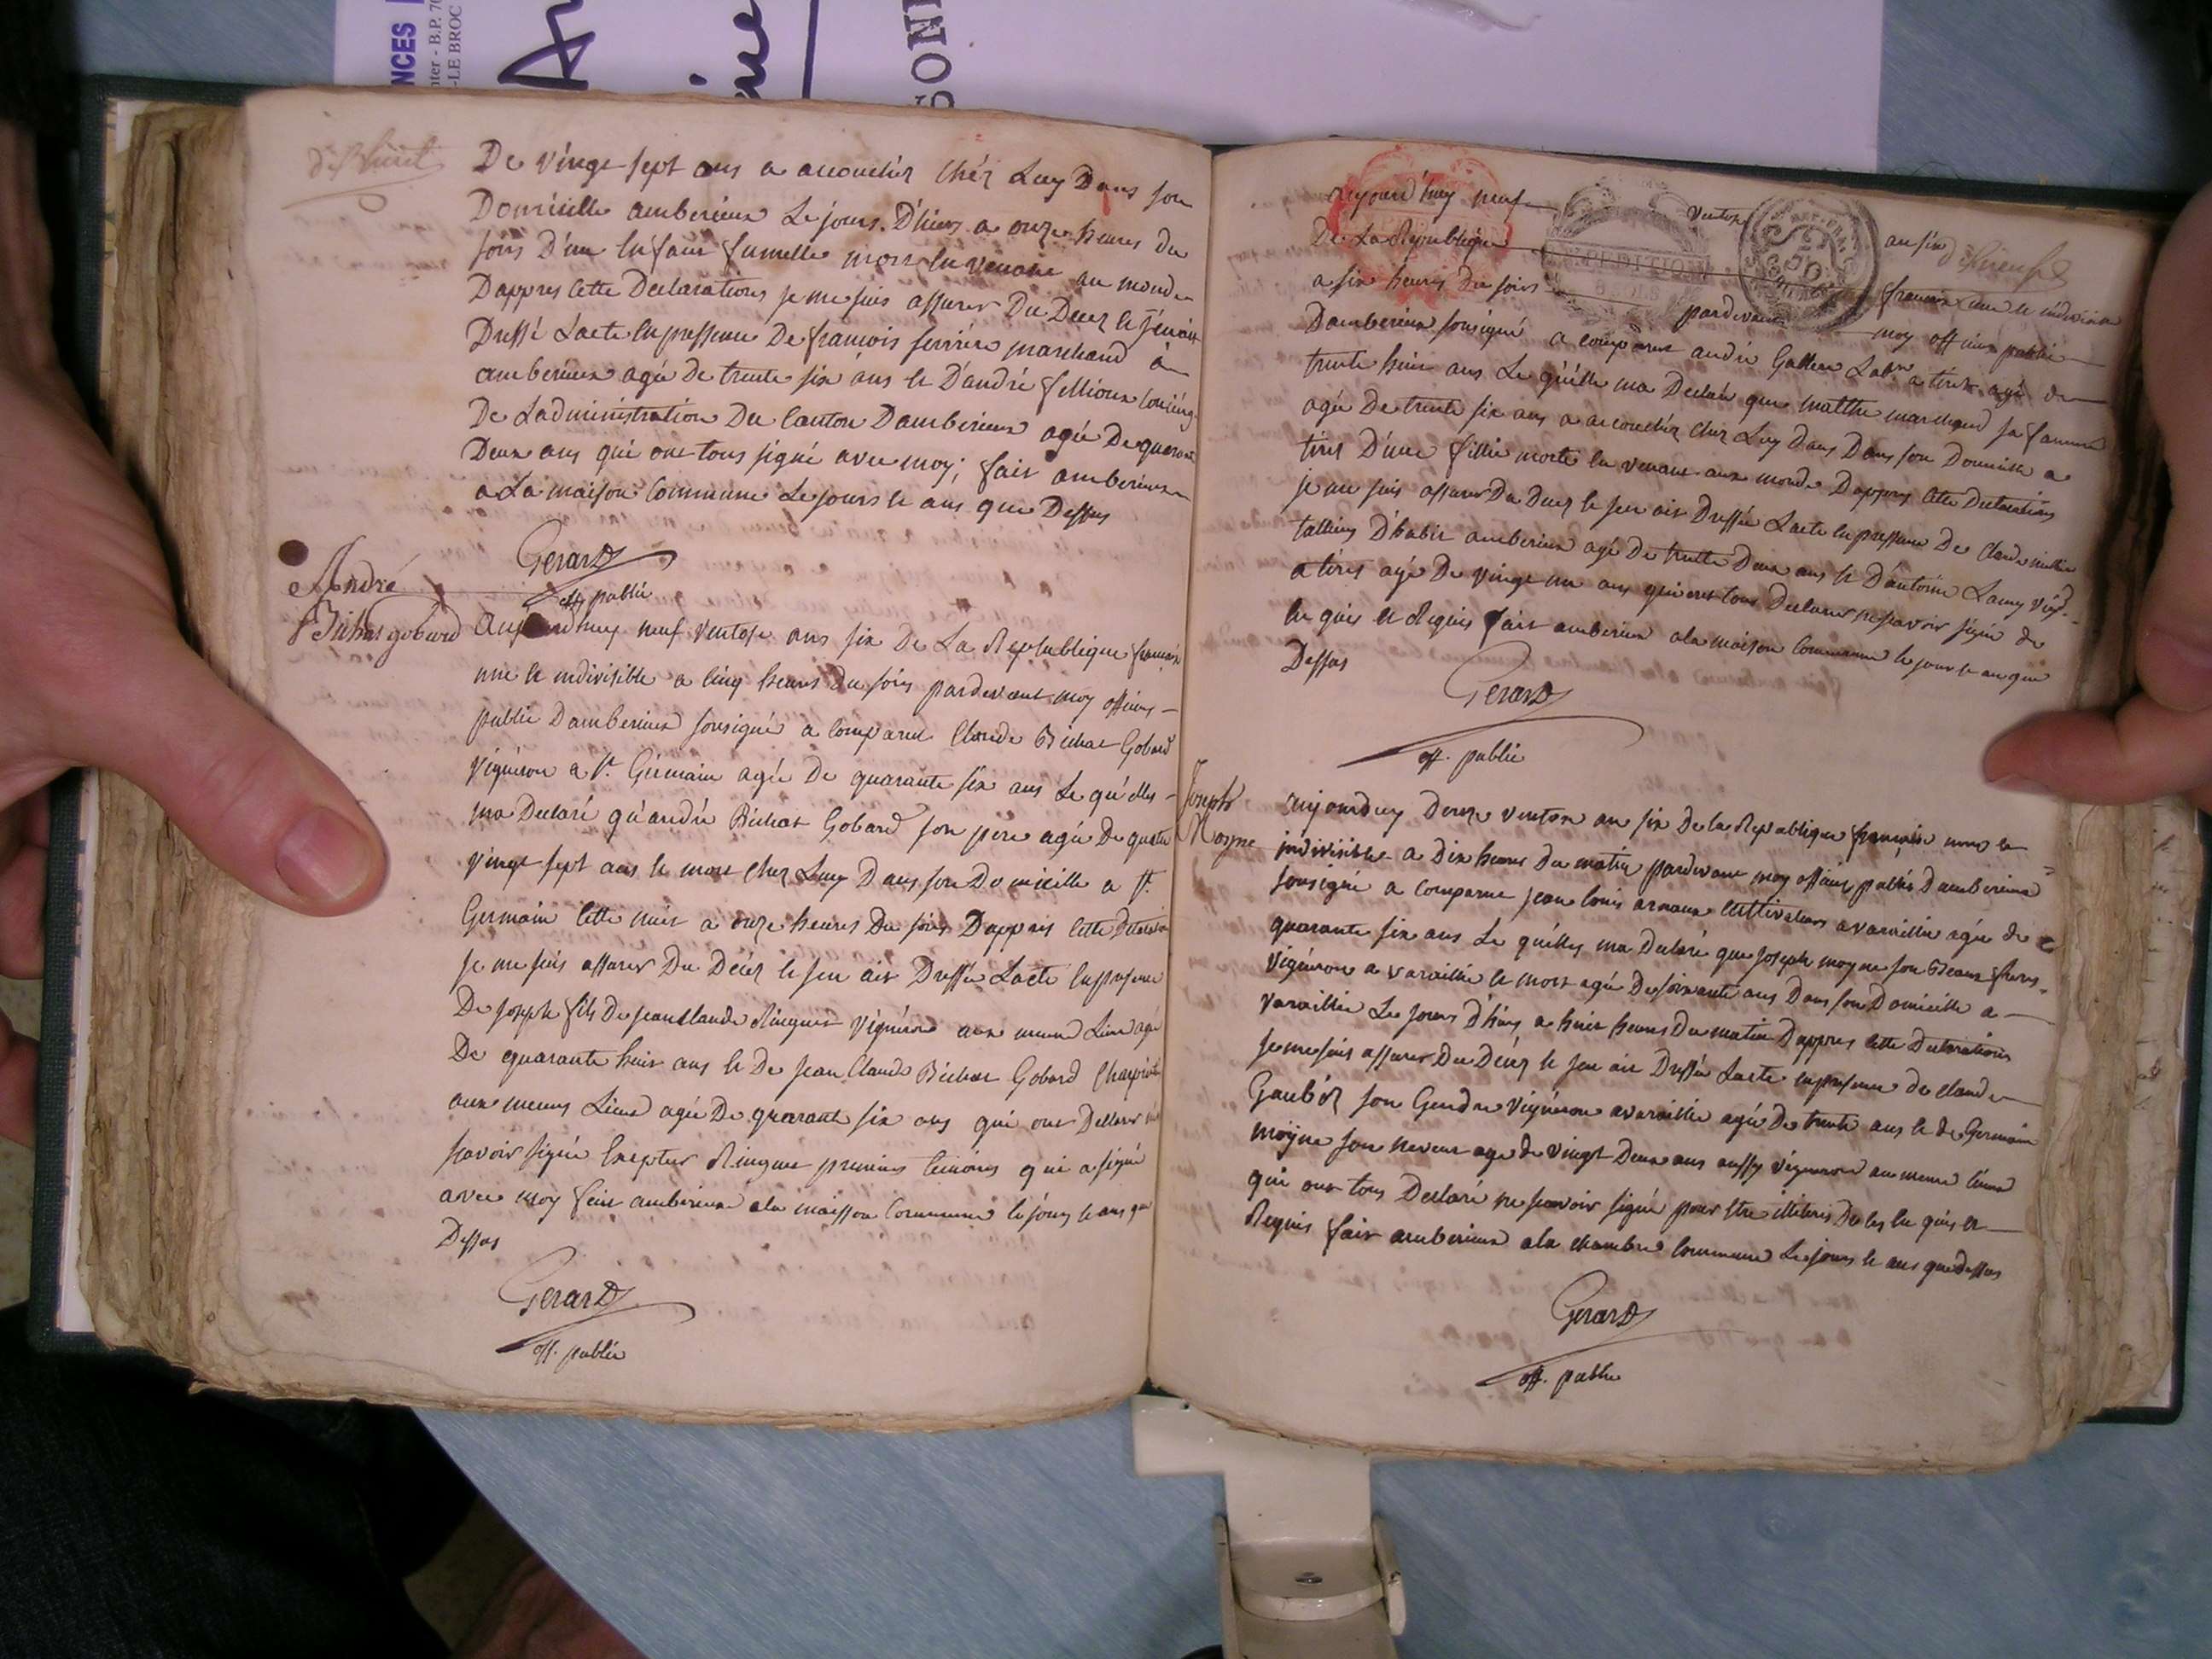 NCES
B.P. 70
-LE BROC
SONN
De vingt sept ans a accouchér chéz Luy Dans son
Domicille amberieux Le jours D'hiers a onze heures du
soirs D'une Enfant fumelle mort En venant au monde
Dappres Cette Declarations je me suis assurer Du Decez et j'en ait
Dressé L'acte En pressence De françois ferrier marchand à
amberieux agée de trente six ans et D'andré fellioux
De Ladministration Du Canton Damberieux agée De quarante
Deux ans qui ont tous signé avec moy, fait amberieux
a La maison Commune Le jours et ans que Dessus
Gerard
off. public
André
Bichat gobard
Aujourdhuy neuf ventose ans six De La Republique françoise
une et indivisible a cinq heures du soirs pardevant moy officiers
public Damberieux sousigné a Comparut Claude Bichat Gobard
vigneron a St. Germain agée De quarante six ans Le quelles
ma Declaré qu'andré Bichat Gobard son pere agée De quatre
vingt sept ans et mort chez Luy Dans son Domicille a St.
Germain Cette nuit a onze heures Du soirs Dappres Cette Declaration
je me suis assurer Du Décez et jen ait Dressée Lacte En presence
De joseph fils De jean Claude Ringuet vigneron aux meme Lieux agée
De quarante huit ans et De jean Claude Bichat Gobard
aux memes Lieux agée De quarante six ans qui ont Declarer
scavoir signée Excepter Ringuet premiers temoins qui a signé
avec moy fait amberieux ala maisson Commune le jours et ans que
Dessus
Gerard
off. public
aujourd'huy neuf ventose an six
De La Republique françoise une et indivisible
a six heures du soirs pardevant moy officier public
Damberieux sousigné a comparut andré Gallea Labr. a tiret agé de
trente huit ans Le quelle ma Declaré que Matthe marchand sa famme
agée De trente six ans a accouchér chez Luy Dans Dans son Domicille a
tiret D'une fillie morte En venant aux monde Dappres Cette Declarations
je me suis assurer Du Decez et jen ait Dressée Lacte En pressence De Claude
tallieur D'habit amberieux agé De trente Deux ans et D'antoine Lamy
a tiret agée De vingt un ans qui ont tous Declarer ne savoir signée de
En quis et Requis fait amberieux ala maison Commune le jour et an que
Dessus
Gerard
off. public
Joseph
Moyne
aujourduy Douze ventose an six De la Republique françoise une et
indivisible a Dix heures Du matin pardevant moy officier public Damberieux
sousigné a Comparut jean louis arnaux Cultivateurs a vareillie agée de
quarante six ans Le quelles ma Declaré que joseph moyne son Beaux freres
vigneron a vareillie et mort agée De soixante ans Dans son Domicille a
vareillie Le jours D'hiers a huit heures Du matin Dappres Cette Declarations
je me suis assurer Du Décez et jen ait Dressée Lacte En presence de Claude
Gaubéz son Gendre vigneron a vareillie agée De trente ans et de Germain
moyne son neveux age de vingt Deux ans aussy vigneron au meme lieux
qui ont tous Declaré ne scavoir signé pour Etre De les En quis et
Requis fait amberieux ala chambre Commune Le jours et ans que dessus
Gerard
off. public